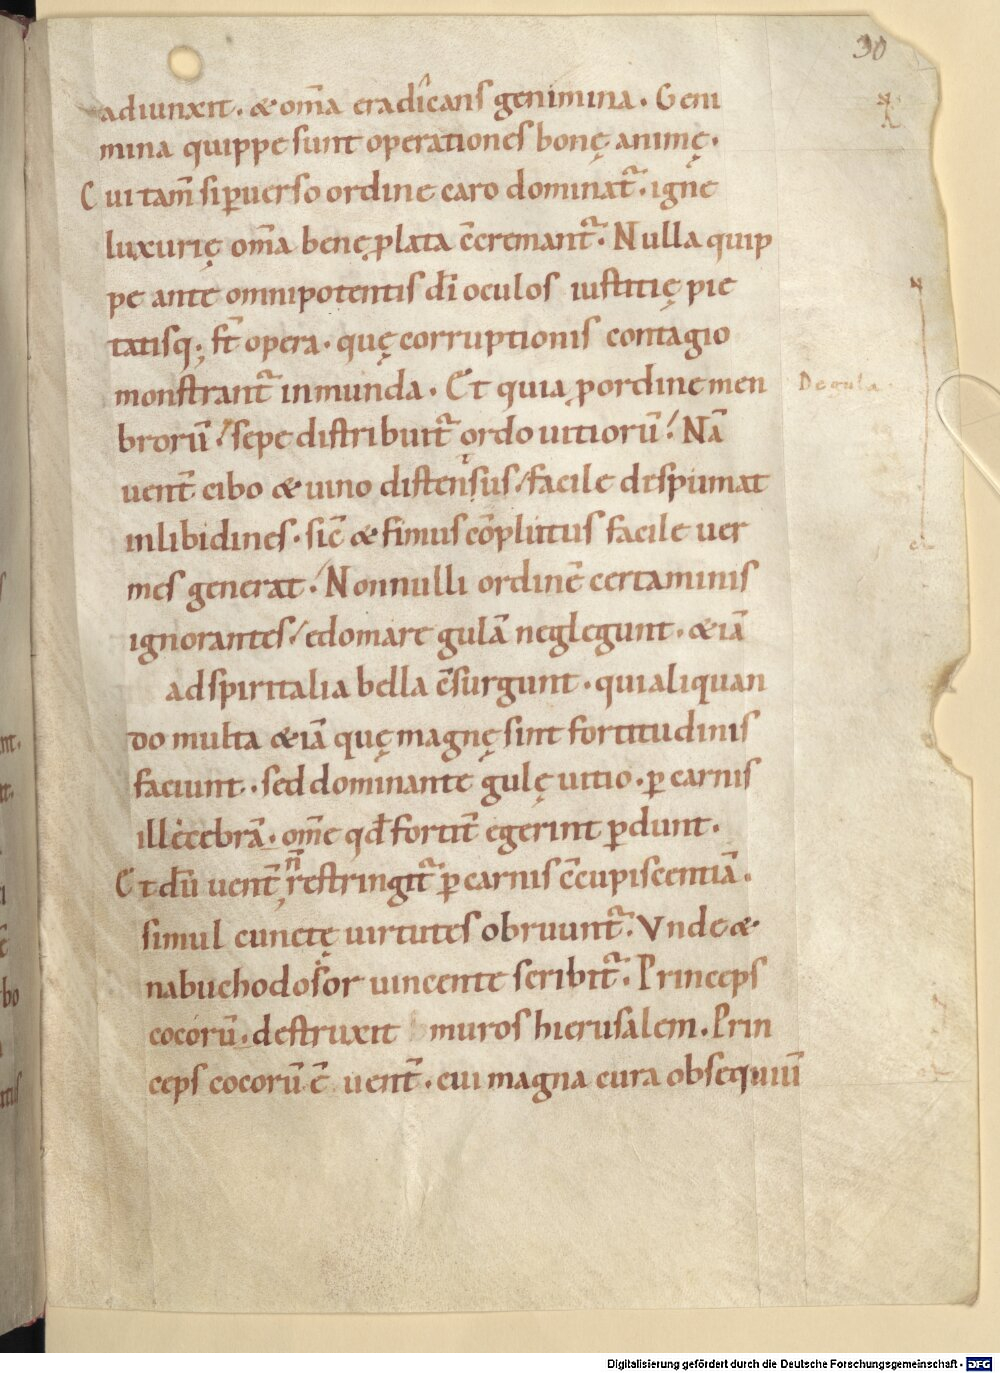 30
adiunxit. & om̄a eradicans genimina. Geni
mina quippe sunt operationes bonę animę.
Cui tam̄ si ꝑuerso ordine caro dominat᷑. igne
luxurię om̄a bene ꝓlata c̄cremant᷑. Nulla quip
pe ante omnipotentis dī oculos iustitię pie
tatisq; st̄ opera. quę corruptionis contagio
monstrant᷑ inmunda. Et quia ꝓ ordine men
brorū sepe distribuit᷑ ordo uitiorū. Nā
uent̄ cibo & uino distensus, facile despumat
inlibidines. sic̄ & fimus cōplutus facile uer
mes generat. Nonnulli ordinē certaminis
ignorantes, edomare gulā neglegunt. & iā
ad spiritalia bella c̄surgunt. qui aliquan
do multa & iā quę magnę sint fortitudinis
faciunt. sed dominante gulę uitio. ꝑ carnis
illecebrā. om̄e qd̄ fortit̄ egerint ꝑdunt.
Et dū uent̄ n̄ restringit᷑ ꝑ carnis c̄cupiscentiā.
simul cunctę uirtutes obruunt᷑. Vnde &
nabuchodosor uincente scribit᷑. Princeps
cocorū. destruxit muros hierusalem. Prin
ceps cocorū ē uent̄. cui magna cura obsequiū
De gula.
Digitalisierung gefördert durch die Deutsche Forschungsgemeinschaft - DFG